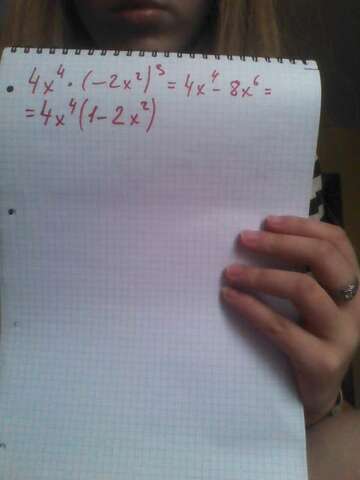 4x⁴ · (-2x²)³ = 4x⁴ - 8x⁶ =
= 4x⁴(1 - 2x²)